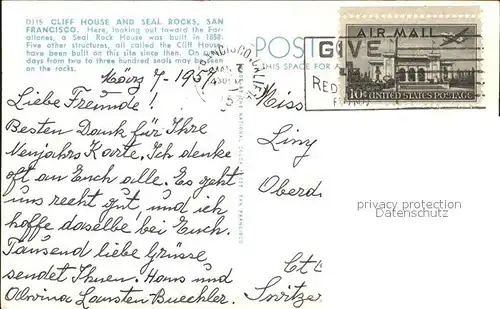 D115 CLIFF HOUSE AND SEAL ROCKS, SAN
FRANCISCO. Here, looking out toward the Far-
allones, a Seal Rock House was built in 1858.
Five other structures, all called the Cliff House
have been built on this site since then. On
days from two to three hundred seals may be seen
on the rocks.
März 7 - 195
Liebe Freunde!
Besten Dank für Ihre
Neujahrs Karte. Ich denke
oft an Euch alle. Es geht
uns recht gut, und ich
hoffe dasselbe bei Euch.
Tausend liebe Grüsse
sendet Ihnen. Hans und
Alwina Laursten Buechler.
POST
THIS SPACE FOR A
GIVE
RED
AIR MAIL
10¢ UNITED STATES POSTAGE
Miss
Liny
Oberd
Ct
Switzer
SAN FRANCISCO
privacy protection
Datenschutz